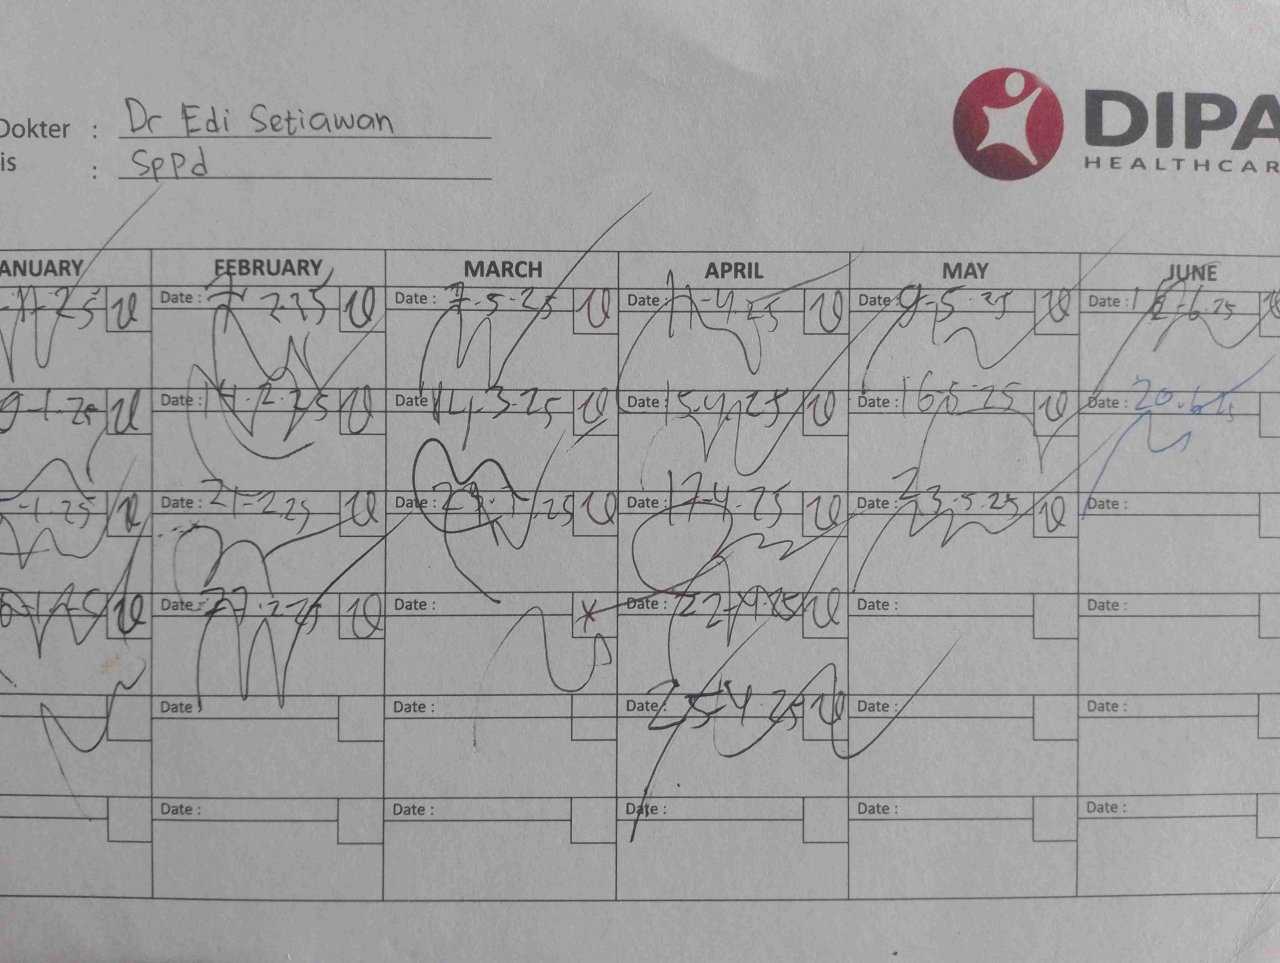 Dokter : Dr Edi Setiawan
is : SpPd
DIPA
HEALTHCAR
ANUARY FEBRUARY MARCH APRIL MAY JUNE
-25 Date : 7 2.25 Date : 7-5-25 Date : 11-4.25 Date : 9-5-25 Date : 12-6.25
9-1.25 Date : 14-2-25 Date 14-3-25 Date : 15-4-25 Date : 16.5-25 Date : 20.6.25
-1.25 Date : 21-2.25 Date : .25 Date : 17-4-25 Date : 23.5.25 Date :
Date : 27.2.25 Date : Date : 22-4.25 Date : Date :
Date : Date : Date : 25-4.25 Date : Date :
Date : Date : Date : Date : Date :